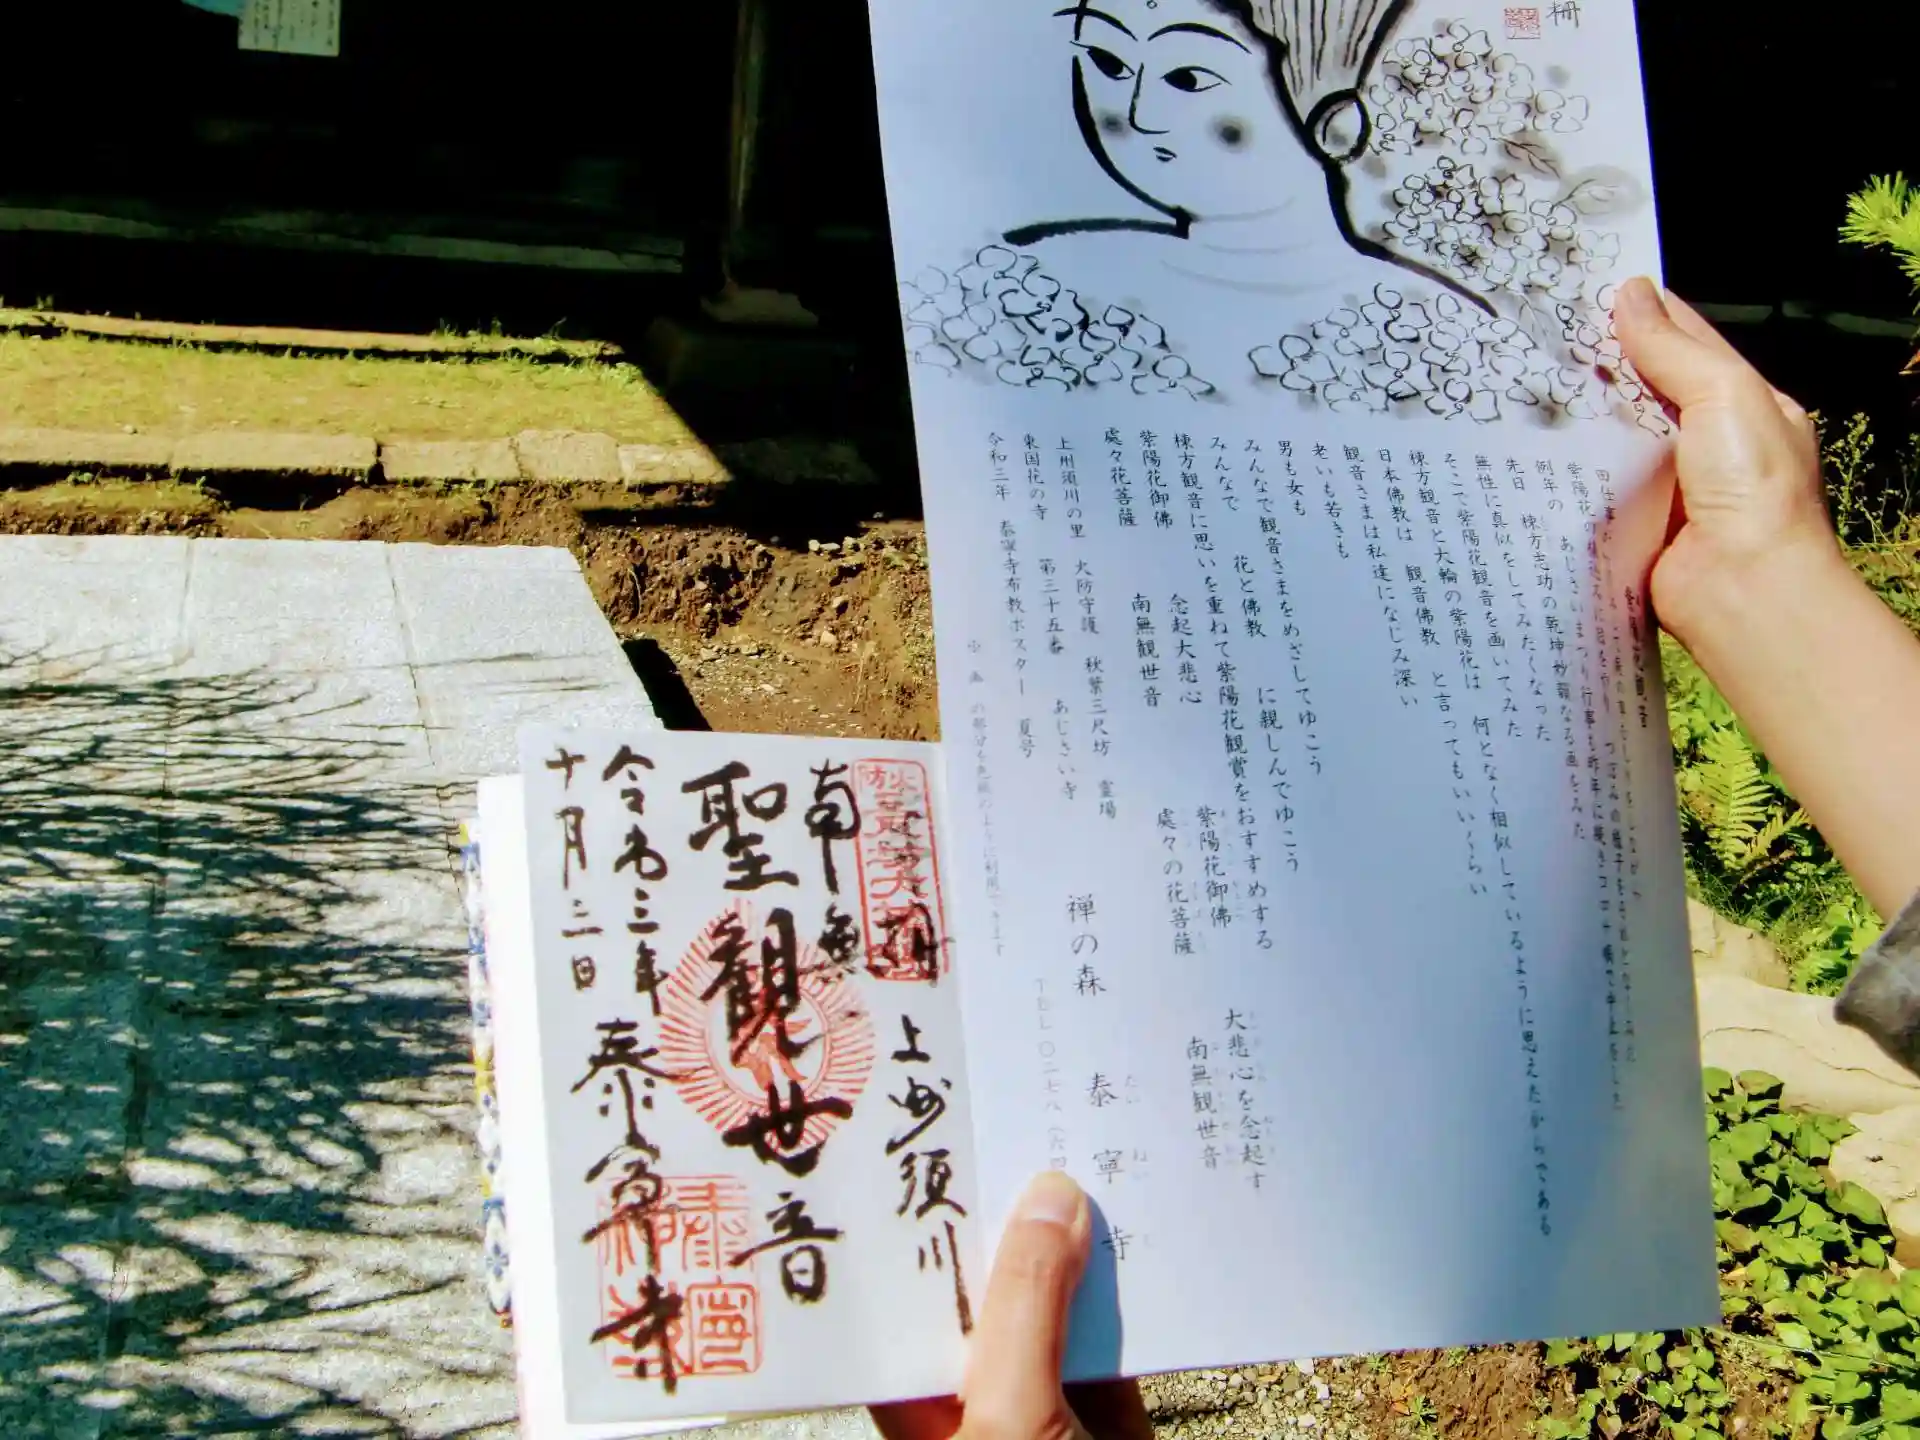 柵
紫陽花観音
例年の あじさいまつり行事も昨年に続きコロナ禍で中止をした
先日 棟方志功の乾坤妙韻なる画をみた
無性に真似をしてみたくなった
そこで紫陽花観音を画いてみた
棟方観音と大輪の紫陽花は 何となく相似しているように思えたからである
日本佛教は 観音佛教 と言ってもいいくらい
観音さまは私達になじみ深い
老いも若きも
男も女も
みんなで観音さまをめざしてゆこう
みんなで 花と佛教 に親しんでゆこう
棟方観音に思いを重ねて紫陽花観賞をおすすめする
紫陽花御佛 念起大悲心 紫陽花御佛 大悲心を念起す
處々花菩薩 南無観世音 處々の花菩薩 南無観世音
上州須川の里 火防守護 秋葉三尺坊 霊場
東国花の寺 第三十五番 あじさい寺
令和三年 泰寧寺布教ポスター 夏号
禅の森 泰寧寺
たい ねい じ
上州須川
南無
聖観世音
令和三年
十月二日
泰寧寺